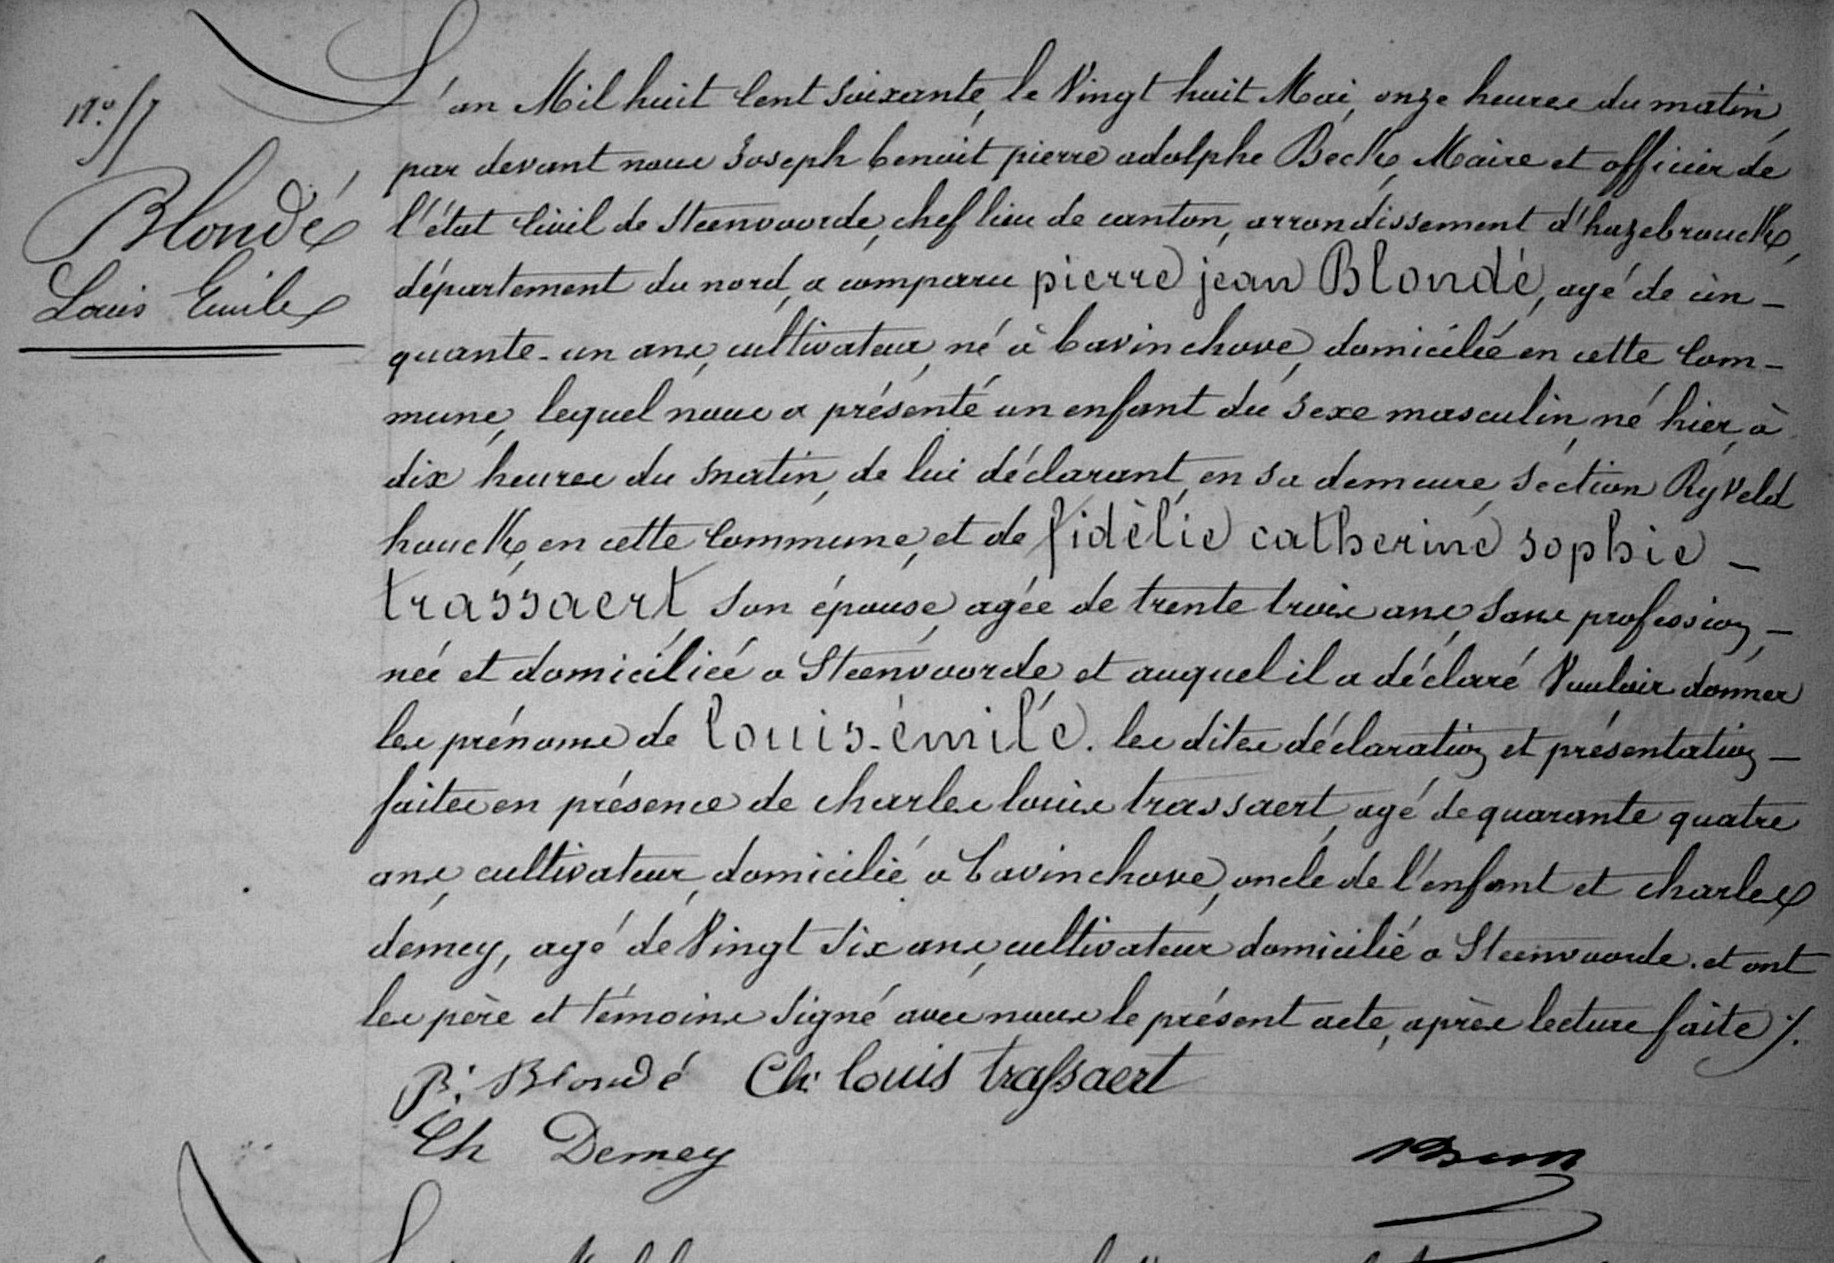 N.° 57
Blondé
Louis Emile
L'an Mil huit Cent soixante, le Vingt huit Mai, onze heures du matin,
par devant nous Joseph benoit pierre adolphe Beck, Maire et officier de
l'état Civil de Steenvoorde, chef lieu de canton, arrondissement d'hazebrouck,
département du nord, a comparu pierre jean Blondé, agé de cin-
quante-un ans, cultivateur, né à bavinchove, domiciliée en cette Com-
mune, lequel nous a présenté un enfant du sexe masculin, né hier, à
dix heures du matin, de lui déclarant, en sa demeure, section Ryveld
houck, en cette Commune, et de fidèlie catherine sophie -
trassaert, son épouse, agée de trente trois ans, sans profession, -
née et domiciliée a Steenvoorde et auquel il a déclaré Vouloir donner
les prénoms de louis-émile. les dites déclaration et présentation -
faites en présence de charles louis trassaert, agé de quarante quatre
ans, cultivateur, domicilié a bavinchove, oncle de l'enfant et charles
demey, agé de Vingt six ans, cultivateur domicilié a Steenvoorde. et ont
les père et témoins signé avec nous le présent acte, après lecture faite ./.
P. J. Blondé Ch. louis trassaert
Ch Demey